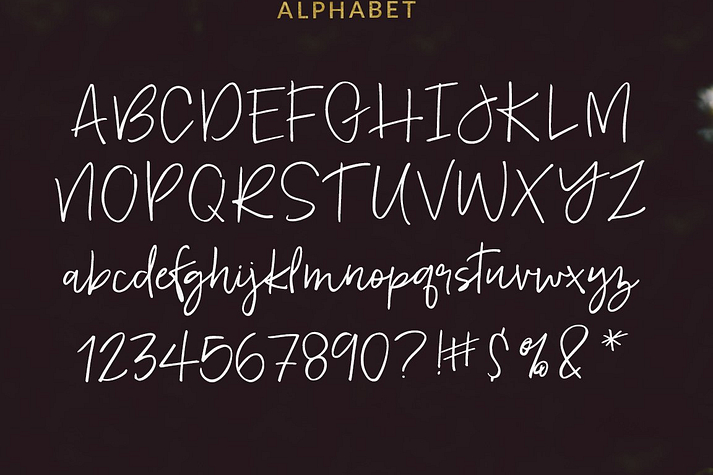 ALPHABET
ABCDEFGHIJKLM
NOPQRSTUVWXYZ
abcdefghijklmnopqrstuvwxyz
1234567890?!#$%&*